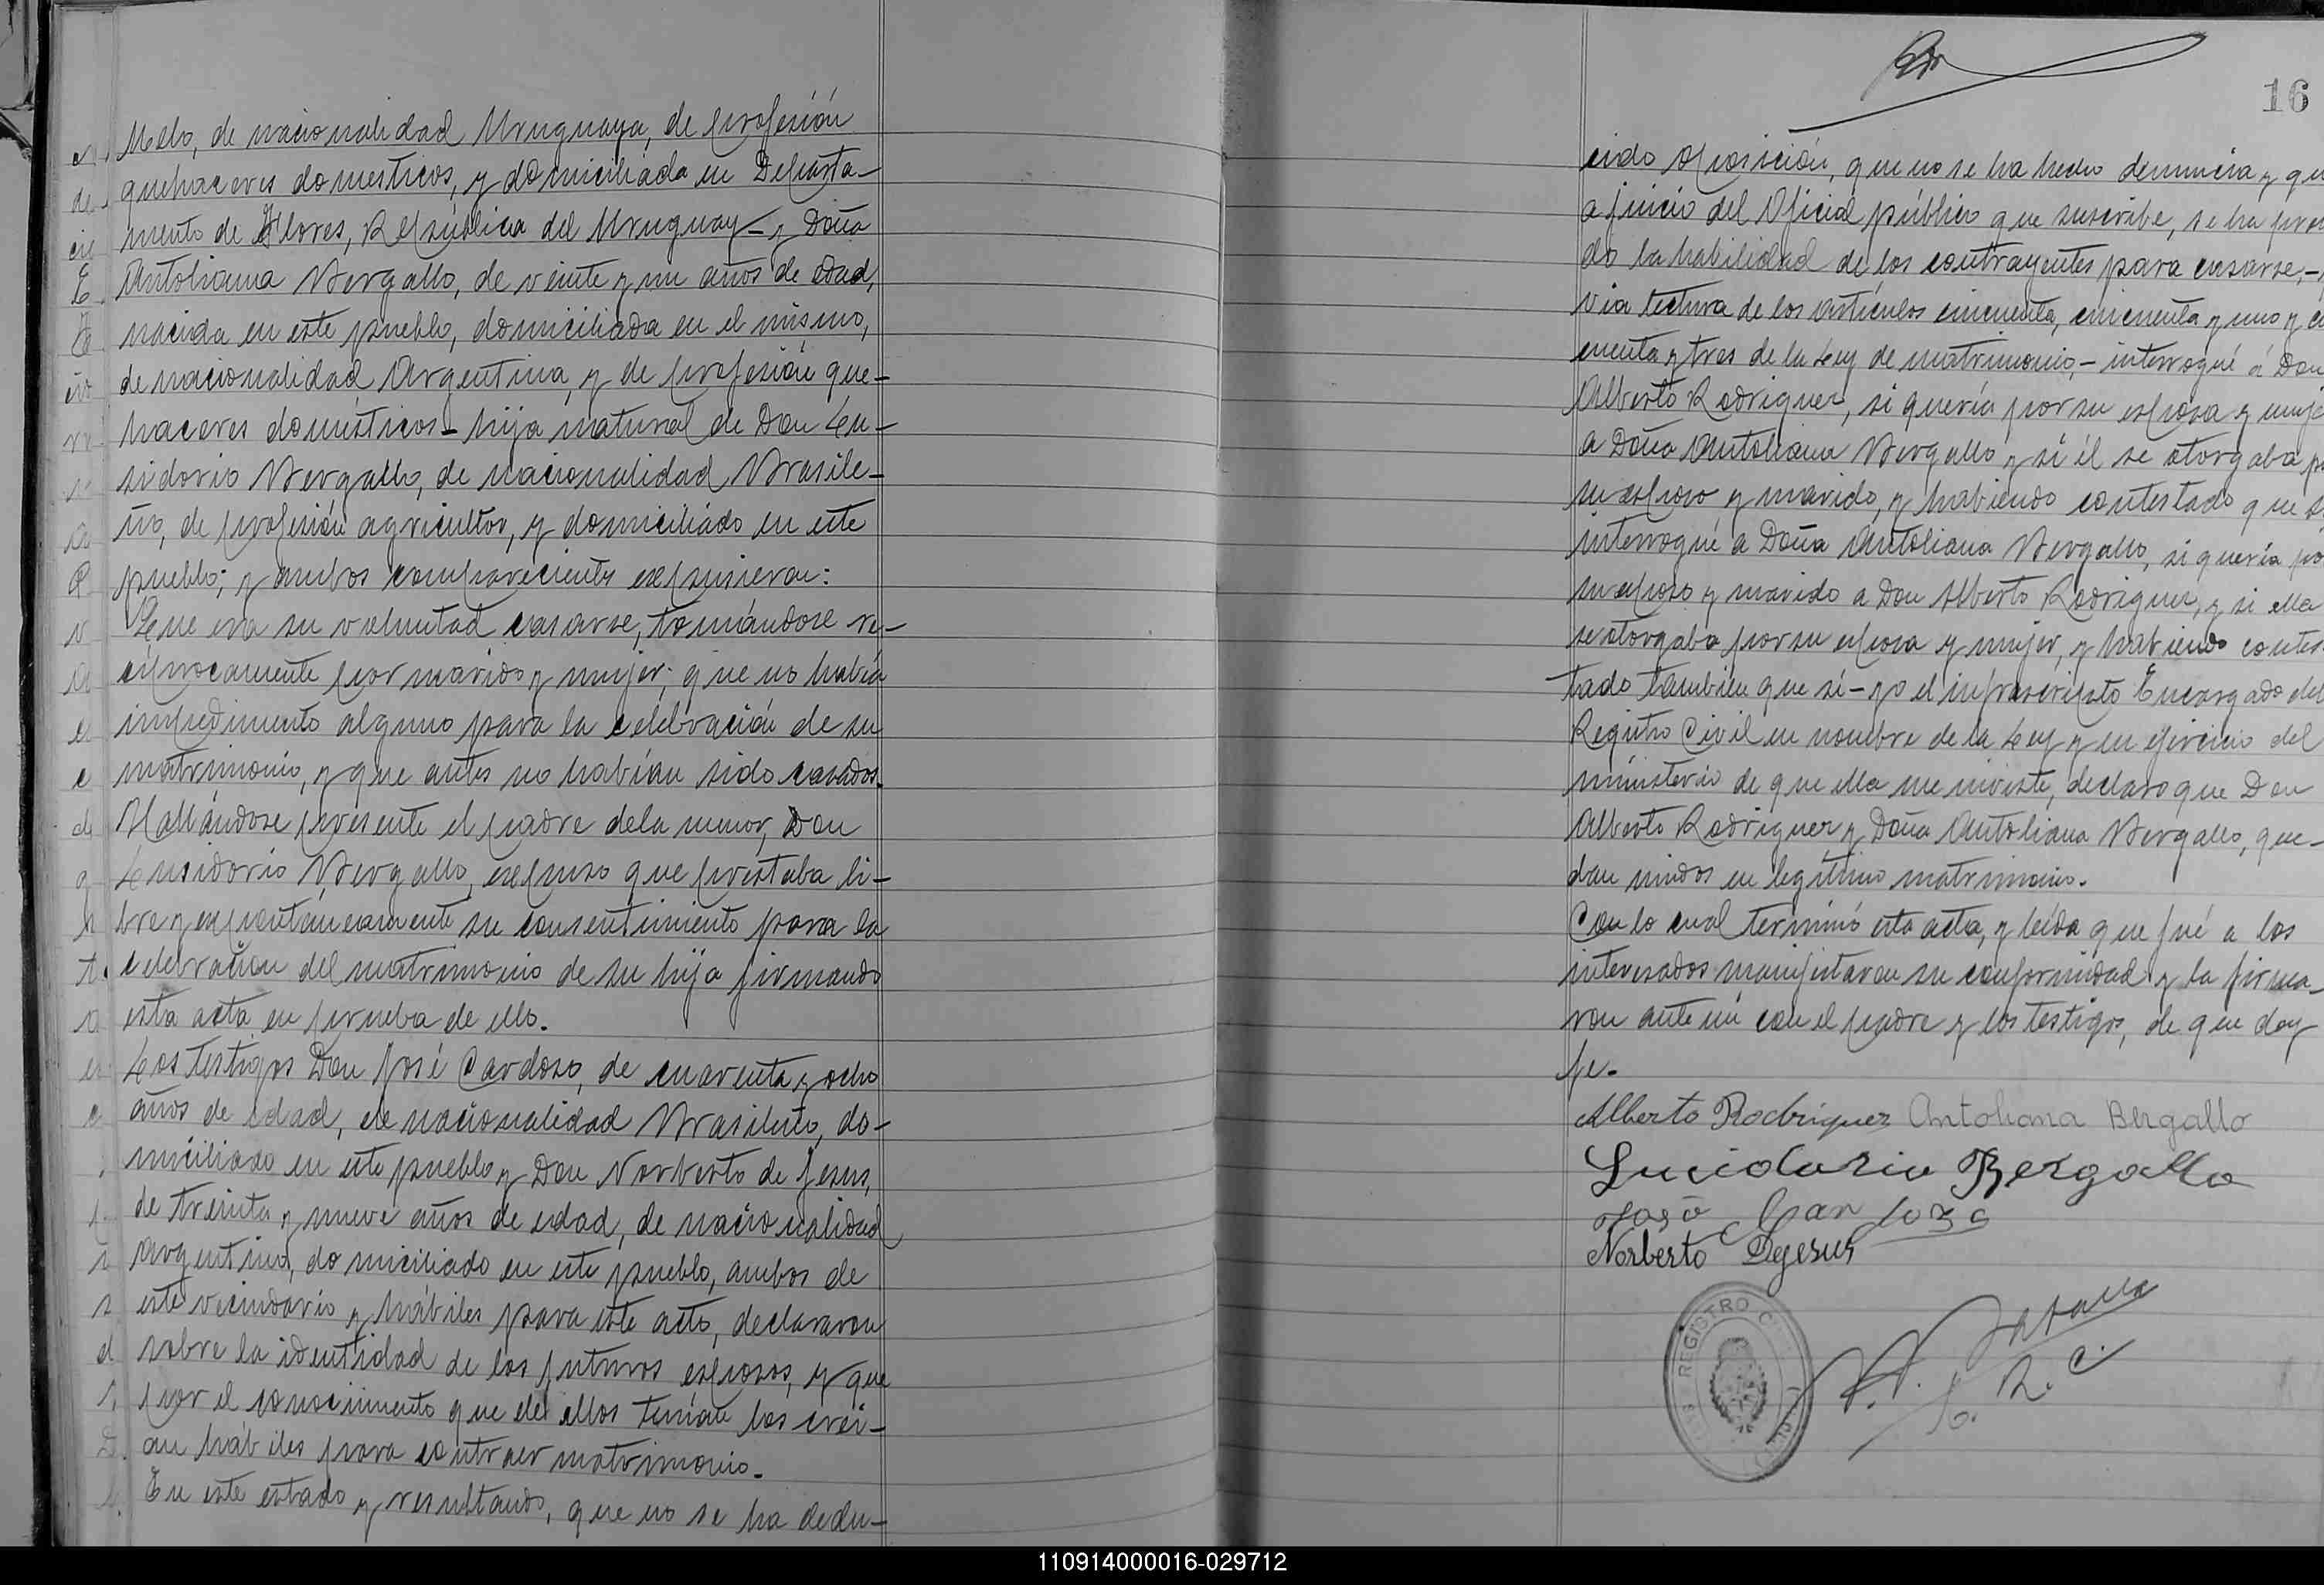 Melo, de nacionalidad Uruguaya, de profesión
quehaceres domesticos, y domiciliada en Departa-
mento de Flores, República del Uruguay- y Doña
Antoliana Bergallo, de veinte y un años de edad,
nacida en este pueblo, domiciliada en el mismo,
de nacionalidad Argentina, y de profesión que-
haceres domésticos- hija natural de Don Lu-
sidorio Bergallo, de nacionalidad Brasile-
ño, de profesión agricultor, y domiciliado en este
pueblo; y ambos comparecientes expusieron:
Que era su voluntad casarse, tomándose re-
cíprocamente por marido y mujer; que no había
impedimento alguno para la celebración de su
matrimonio, y que antes no habían sido casados.
Hallándose presente el padre dela menor, Don
Lusidorio Bergallo, expuso que prestaba li-
bre y espontáneamente su consentimiento para la
celebración del matrimonio de su hija firmando
esta acta en prueba de ello.
Los testigos Don José Cardoso, de cuarenta y ocho
años de edad, de nacionalidad Brasileño, do-
miciliado en este pueblo y Don Norberto de Jesus,
de treinta y nueve años de edad, de nacionalidad
argentino, domiciliado en este pueblo, ambos de
este vecindario y hábiles para este acto, declararon
sobre la identidad de los futuros esposos, y que
por el conocimiento que de ellos tenían los creí-
an hábiles para contraer matrimonio.
En este estado y resultando, que no se ha dedu-
16
cido oposición, que no se ha hecho denuncia y qu
a juicio del Oficial público que suscribe, se ha pro
do la habilidad de los contrayentes para casarse,-
via lectura de los artículos cincuenta, cincuenta y uno y ci
cuenta y tres de la Ley de matrimonio,- interrogué á Don
Alberto Rodriguez, si quería por su esposa y muje
a Doña Antoliana Bergallo y si él se otorgaba p
su esposo y marido, y habiendo contestado que si
interrogué a Doña Antoliana Bergallo, si quería po
su esposo y marido a Don Alberto Rodriguez, y si ella
se otorgaba por su esposa y mujer, y habiendo contes-
tado también que sí- yo el infrascripto Encargado del
Registro Civil en nombre de la Ley y en ejercicio del
ministerio de que ella me inviste, declaro que Don
Alberto Rodriguez y Doña Antoliana Bergallo, que-
dan unidos en legítimo matrimonio.
Con lo cual terminó esta acta, y leída que fué a los
interesados manifestaron su conformidad y la firma-
ron ante mi con el padre y los testigos, de que doy
fe.
Alberto Rodriguez Antoliana Bergallo
Lucidorio Bergallo
José Cardozo
Norberto Dejesus
REGISTRO
R. C.
110914000016-029712